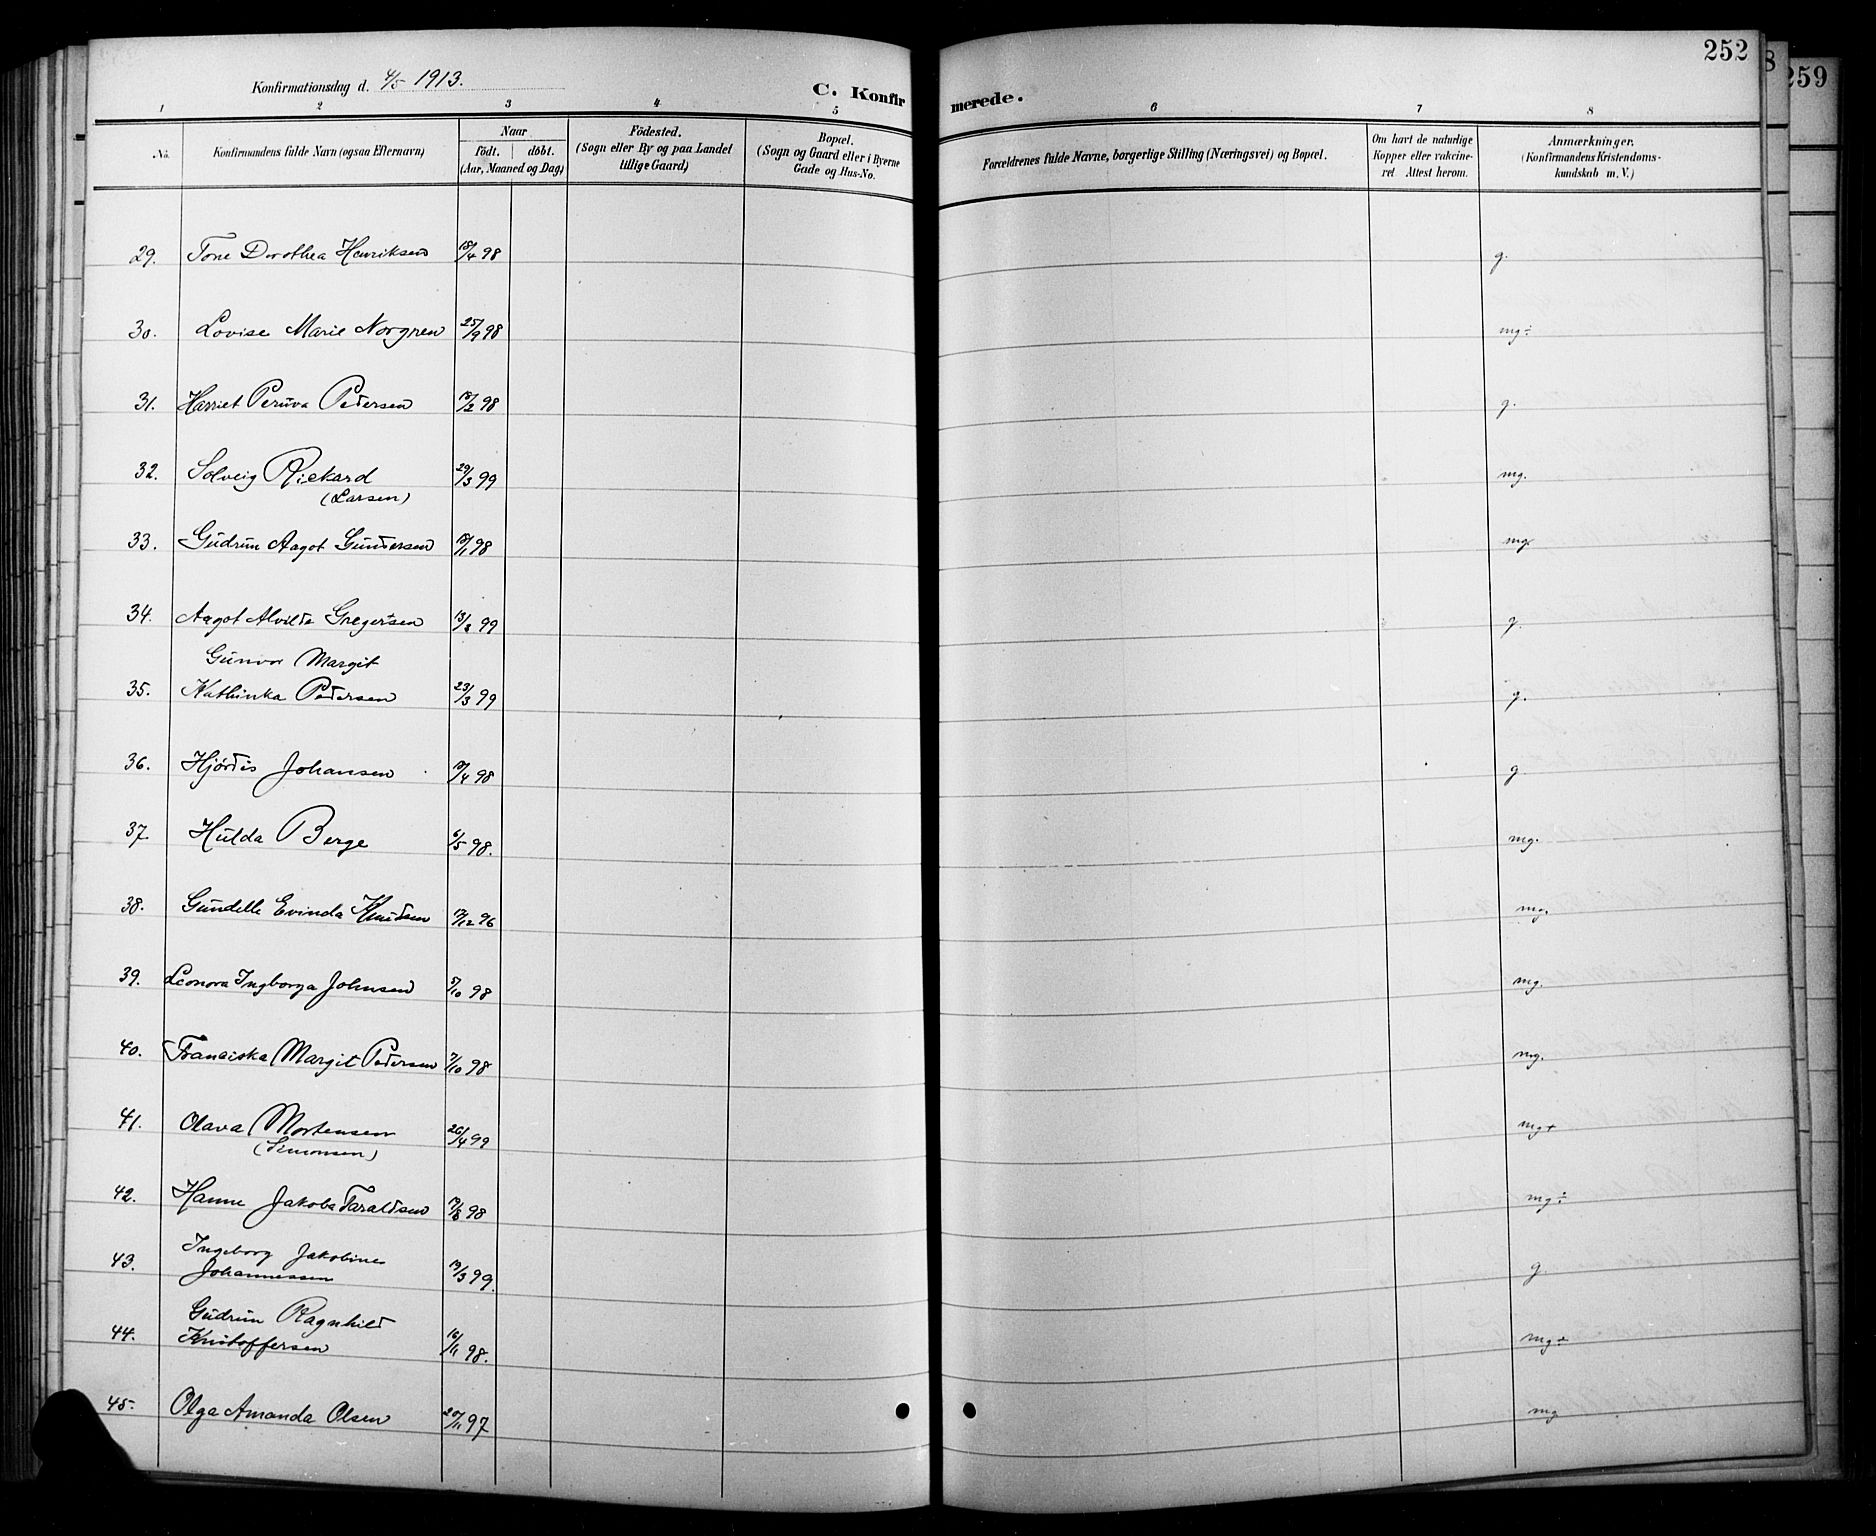 252
8
259
Konfirmationsdag d. 4/5 1913.
C. Konfirmerede.
1 2 3 4 5 6 7 8
No.
Konfirmandens fulde Navn (ogsaa Efternavn)
Naar
födt. döbt.
(Aar, Maaned og Dag)
Födested.
(Sogn eller By og paa Landet
tillige Gaard)
Bopæl.
(Sogn og Gaard eller i Byerne
Gade og Hus-No.
Forældrenes fulde Navne, borgerlige Stilling (Næringsvei) og Bopæl.
Om havt de naturlige
Kopper eller vakcine-
ret Attest herom.
Anmærkninger.
(Konfirmandens Kristendoms-
kundskab m. V.)
29. Tone Dorothea Henriksen 18/4 98 g.
30. Lovise Marie Norgren 25/9 98 mg÷
31. Harriet Peruva Pedersen /2 98 g.
32. Solveig Rickard 29/3 99 mg.
(Larsen)
33. Gudrun Aagot Gundersen /1 98 mg.
34. Aagot Alvilde Gregersen 13/3 99 g.
Gunvor Margit
35. Kathinka Pedersen 23/3 99 g.
36. Hjördis Johansen /4 98 g.
37. Hulda Berge 6/5 98. mg.
38. Gundelle Evinda Knudsen /12 96 mg.
39. Leonora Ingborga Johnsen 5/10 98 mg.
40. Franciska Margit Pedersen 7/10 98 mg.
41. Olava Mortensen 26/4 99 mg+
(Simonsen)
42. Hanne Jakoba Taraldsen /8 98 mg÷
Ingeborg Jakobine
43. Johannessen 19/3 99. g.
Gudrun Ragnhild
44. Kristoffersen 16/11 98. mg+
45. Olga Amanda Olsen 20/11 97 mg